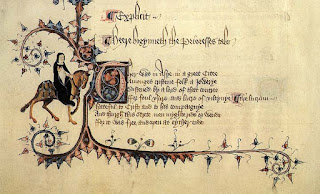 Explicit
Heere bigynneth the Prioresses tale
Ther was in Asye in a greet Citee
Amonges cristene folk a Jewerye
Sustened by a lord of that contree
For foul usure and lucre of vileynye
Hateful to Crist and to his compaignye
And thurgh the strete men myghte ride or wende
For it was free and open at eyther ende